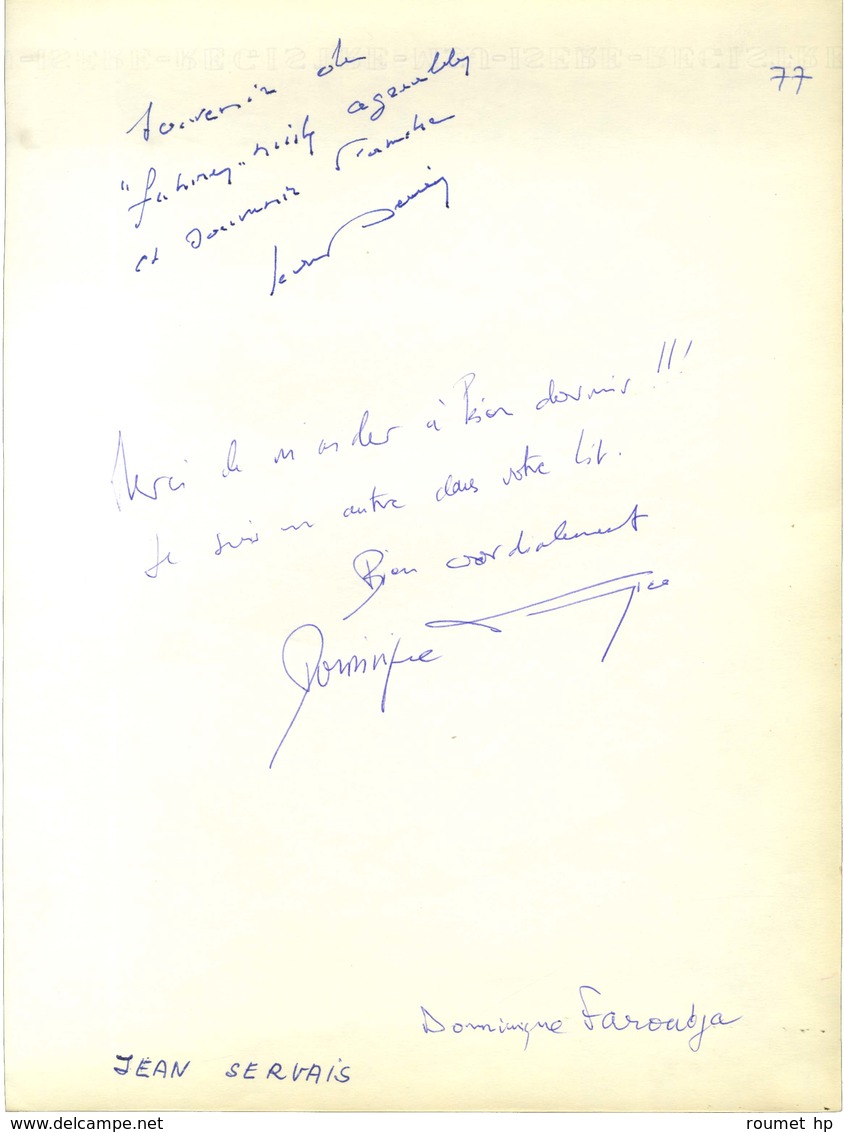 77
Souvenir de
agréable
et souvenir
Merci de m'aider à Bien dormir !!!
Je suis un autre dans votre lit.
Bien cordialement
Dominique
Dominique Faroudja
JEAN SERVAIS
www.delcampe.net
roumet hp